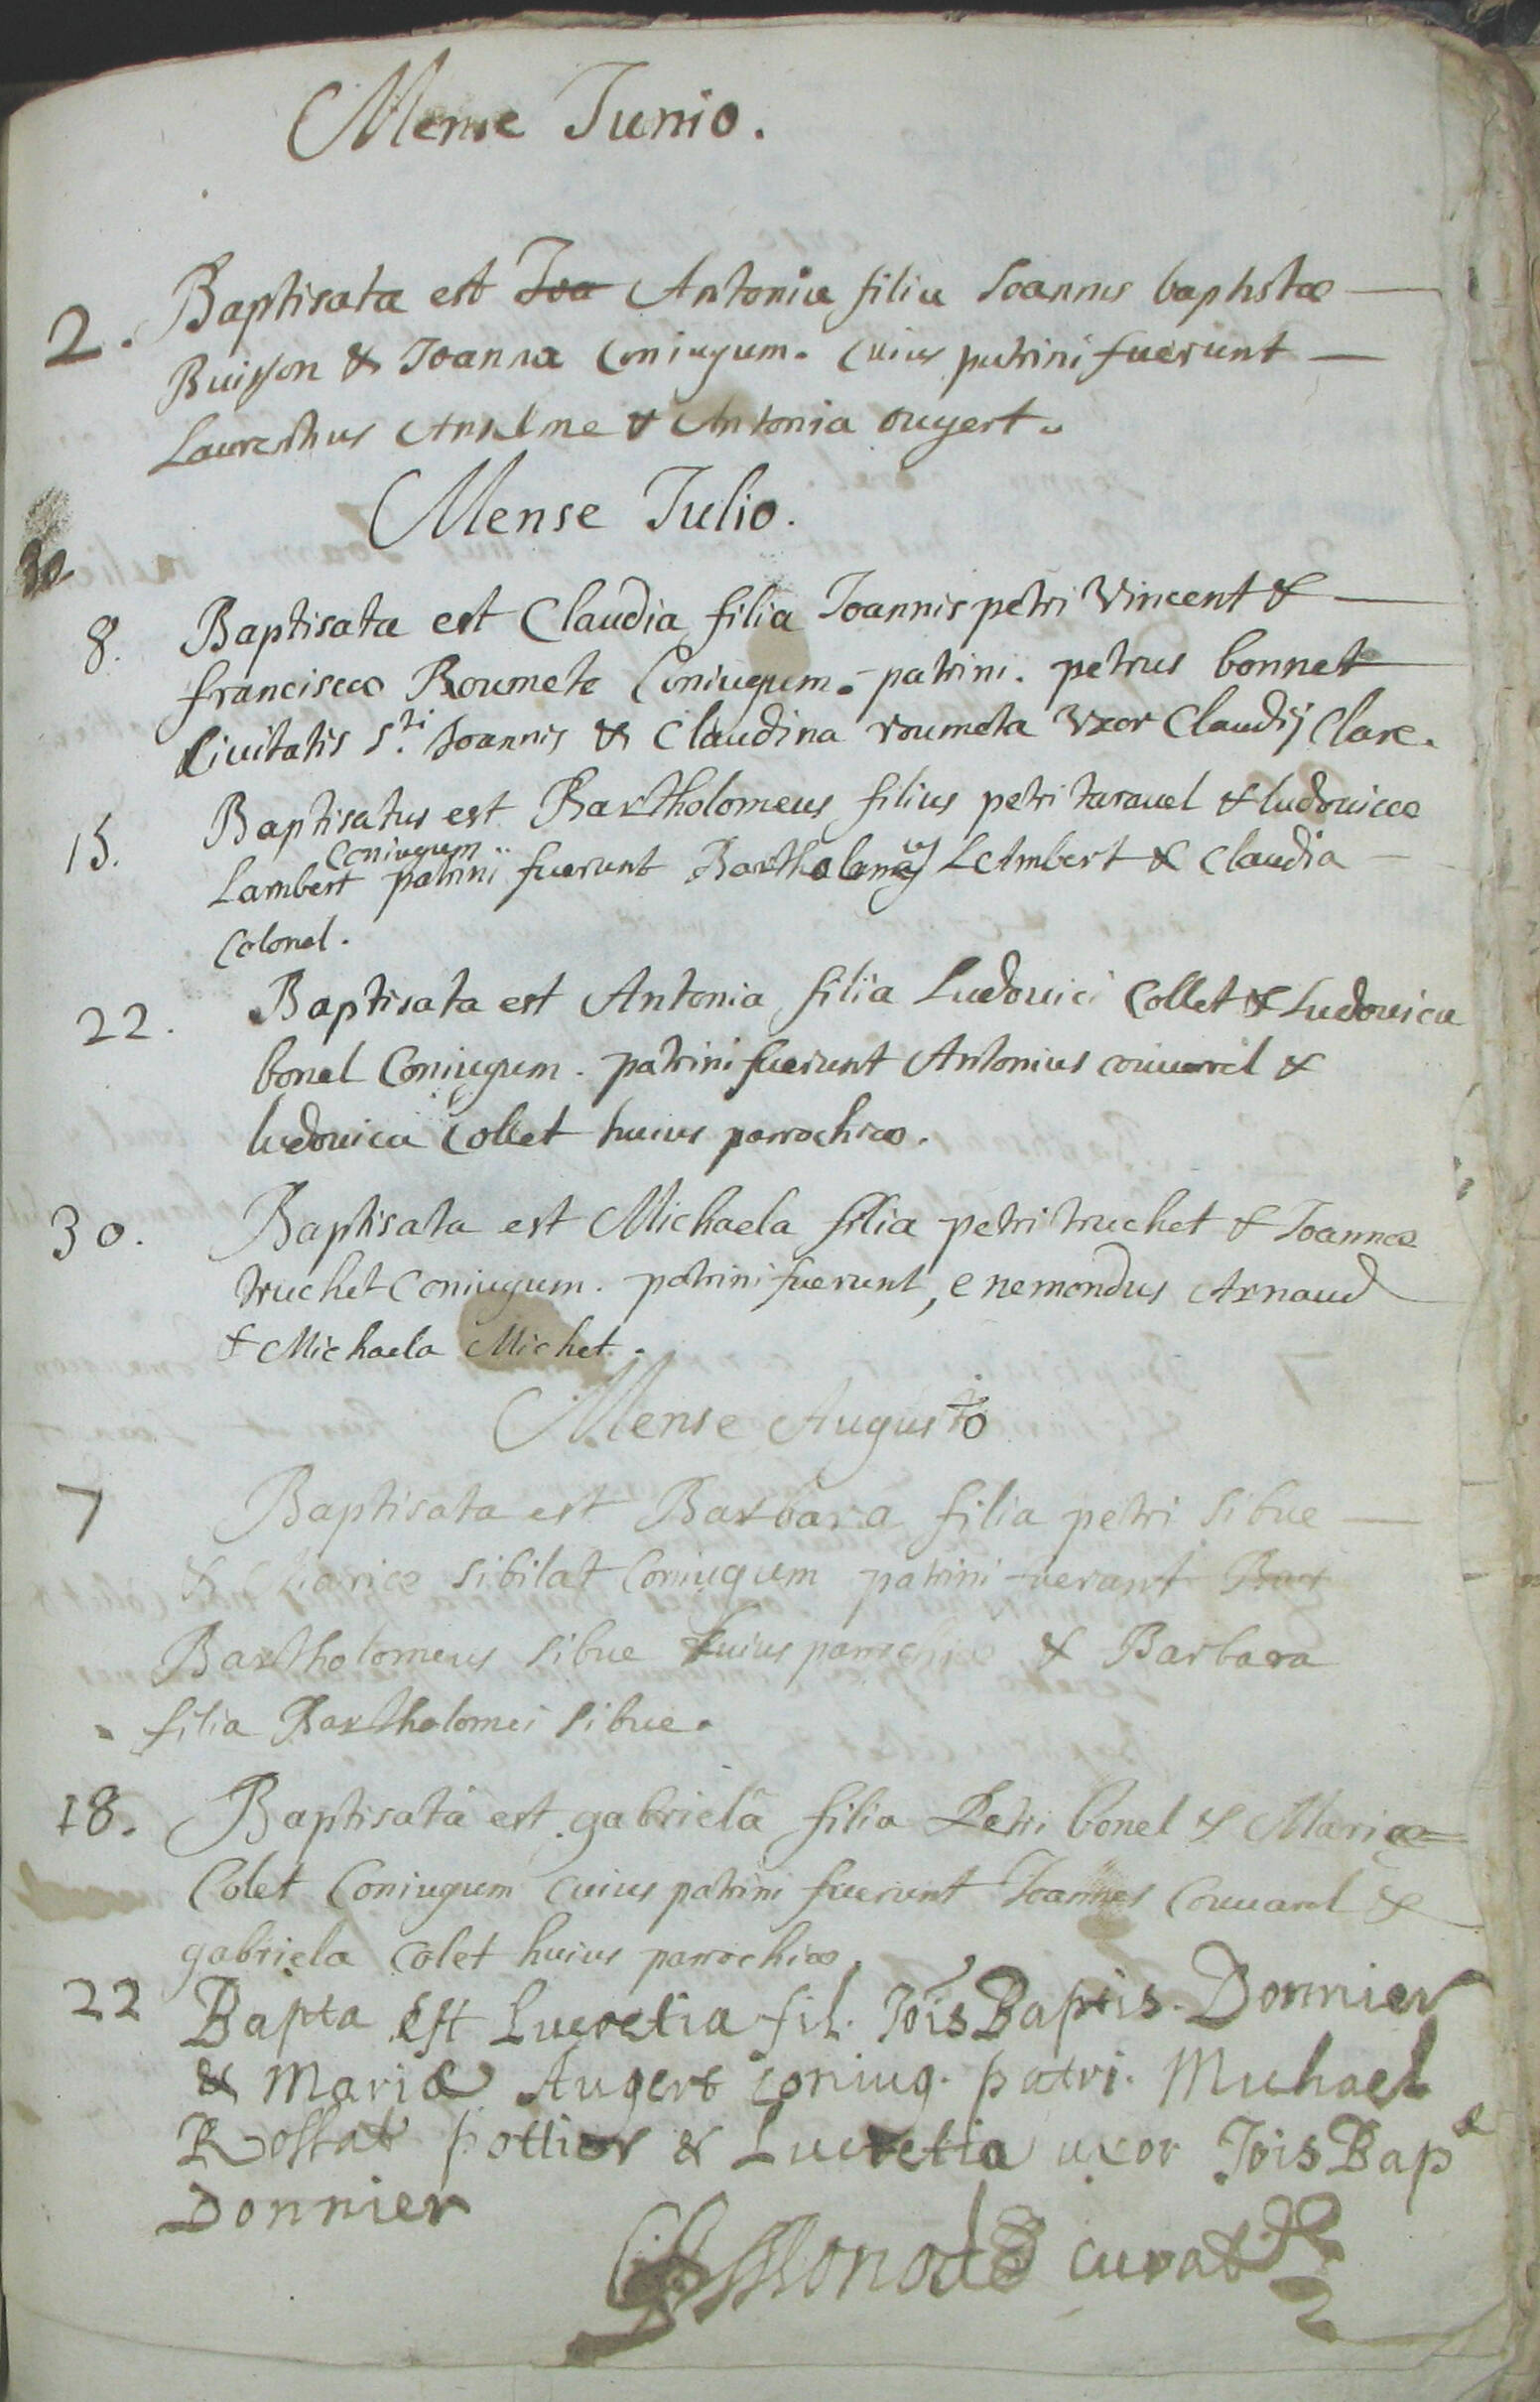 Mense Iunio.
2. Baptisata est Ioa Antonia filia Ioannis baptistæ
Buisson & Ioanna Coniugum. Cuius patrini fuerunt
Laurentius Anselme & Antonia ougert.
Mense Iulio.
30
8. Baptisata est Claudia filia Ioannis petri Vincent &
franciscæ Roumete Coniugum. patrini. petrus bonnet
Ciuitatis S.ti Ioannis & Claudina roumeta Vxor Claudij Clare.
15. Baptisatus est Bartholomeus filius petri tarauel & ludouicæ
Coniugum
Lambert patrini fuerunt Bartholomæus LAmbert & Claudia
Colonel.
22. Baptisata est Antonia filia Ludouici Collet & Ludouica
bonel Coniugum. patrini fuerunt Antonius &
ludouica Collet huius parrochiæ.
30. Baptisata est Michaela filia petri truchet & Ioannæ
truchet Coniugum. patrini fuerunt, enemondus Arnaud
& Michaela Michet.
Mense Augusto
7 Baptisata est Barbara filia petri Sibue
& Mariæ sibilat Coniugum patrini fuerunt
Bartholomeus Sibue huius parrochiæ & Barbara
filia Bartholomei Sibue.
18. Baptisata est gabriela filia Petri bonel & Mariæ
Colet Coniugum Cuius patrini fuerunt Ioannes Couuarel &
gabriela Colet huius parrochiæ.
22 Bapta Est Lucretia fil. Jois Baptis. Donnier
& Mariæ Augert coniug. patri. Michael
Rostat pottier & Lucretia uxor Jois Bap.
Donnier
curat